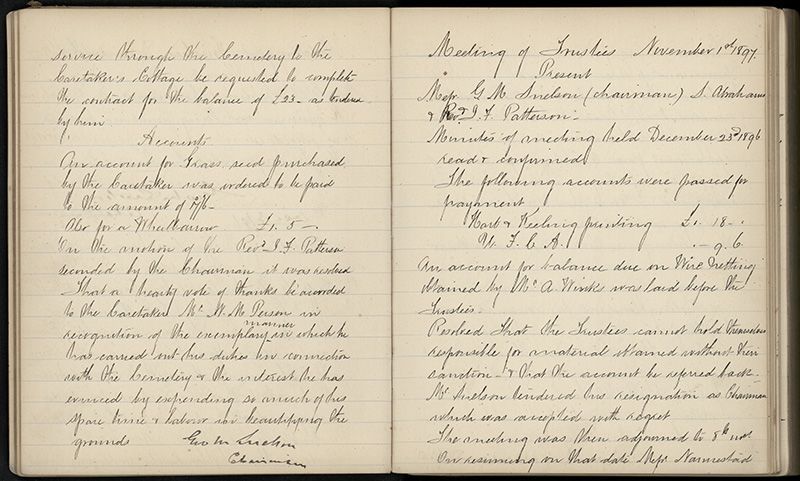 service through the Cemetery to the
Caretaker's Cottage be requested to complete
the contract for the balance of £23 - as tendered
by him
Accounts
An account for Grass seed purchased
by the Caretaker was ordered to be paid
to the amount of 7/6 -
Also for a Wheelbarrow £1. 5 -
On the motion of the Revd. J. F. Patterson
seconded by the Chairman it was resolved
That a hearty vote of thanks be accorded
to the Caretaker Mr. W. M. Person in
recognition of the exemplary manner in which he
has carried out his duties in connection
with the Cemetery & the interest he has
evinced by expending so much of his
spare time & labour in beautifying the
grounds
Geo M Snelson
Chairman
Meeting of Trustees November 1st 1897.
Present
Messrs. G. M. Snelson (chairman) S. Abrahams
& Revd. J. F. Patterson -
Minutes of meeting held December 23rd 1896
read & confirmed
The following accounts were passed for
payment
Hart & Keeling printing £1. 18 -.
. - 9. 6.
An account for balance due on Wire Netting
obtained by Mr. A. Wink was laid before the
Trustees.
Resolved That the Trustees cannot hold themselves
responsible for material obtained without their
sanction & that the account be referred back -
Mr. Snelson tendered his resignation as Chairman
which was accepted with regret
The meeting was then adjourned to 8th inst
On resuming on that date Messrs.